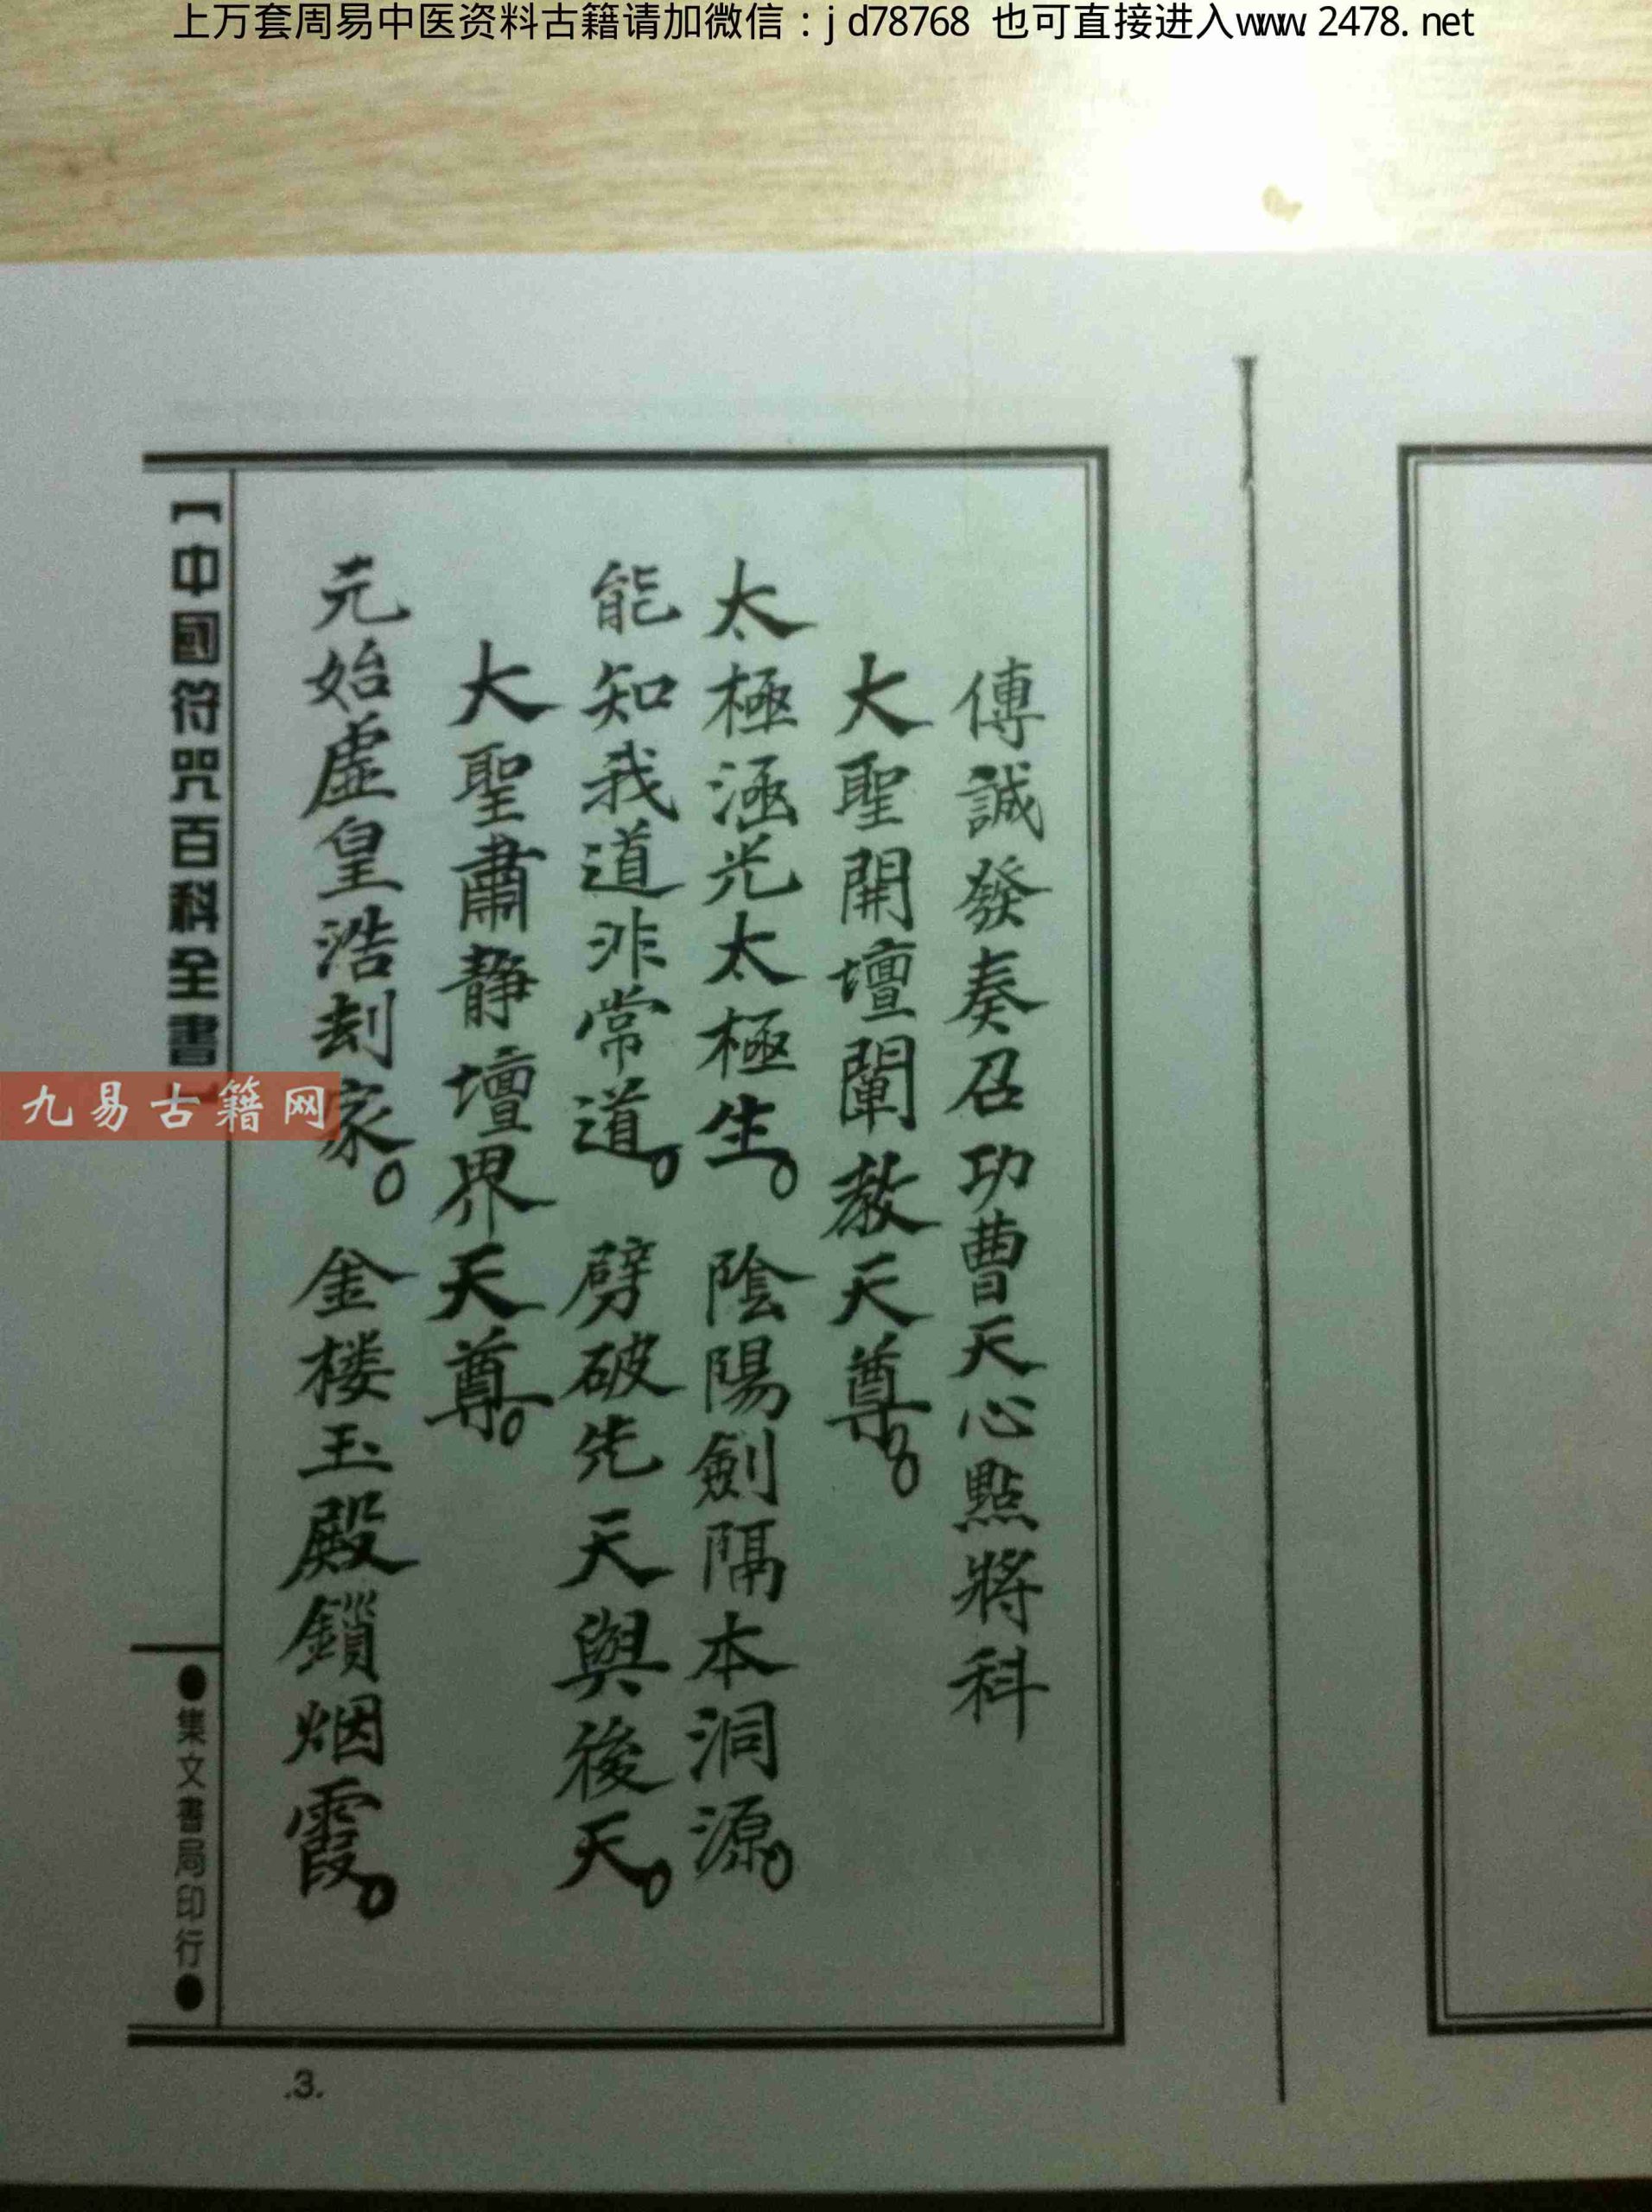 上万套周易中医资料古籍请加微信：jd78768 也可直接进入www.2478.net
傳誠發奏召功曹天心點將科
大聖開壇闡教天尊。
太極涵光太極生。陰陽劍隔本洞源。
能知我道非常道。劈破先天與後天。
大聖肅静壇界天尊。
元始虛皇浩刼家。金楼玉殿鎖烟霞。
【中國符咒百科全書】
●集文書局印行●
九易古籍网
.3.